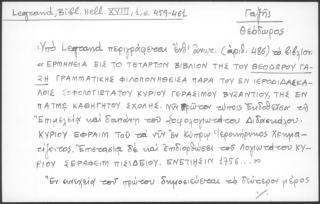 Legrand, Bibl. Hell. XVIII, 1, σ. 459-461
Γαζῆς
Θεόδωρος
Ὑπὸ Legrand περιγράφεται ἐνθ' ἀνωτ. (ἀριθ. 486) τὸ βιβλίον:
«ΕΡΜΗΝΕΙΑ ΕΙΣ ΤΟ ΤΕΤΑΡΤΟΝ ΒΙΒΛΙΟΝ ΤΗΣ ΤΟΥ ΘΕΟΔΩΡΟΥ ΓΑ-
ΖΗ ΓΡΑΜΜΑΤΙΚΗΣ ΦΙΛΟΠΟΝΗΘΕΙΣΑ ΠΑΡΑ ΤΟΥ ΕΝ ΙΕΡΟΔΙΔΑΣΚΑ-
ΛΟΙΣ ΣΟΦΟΛΟΓΙΩΤΑΤΟΥ ΚΥΡΙΟΥ ΓΕΡΑΣΙΜΟΥ ΒΥΖΑΝΤΙΟΥ, ΤΗΣ ΕΝ
ΠΑΤΜΩ ΚΑΘΗΓΗΤΟΥ ΣΧΟΛΗΣ. Νῦν πρῶτον τύποις Ἐκδοθεῖσα τῇ
Ἐπιμελείᾳ καὶ δαπάνῃ τοῦ Σοφολογιωτάτου Διδασκάλου
ΚΥΡΙΟΥ ΕΦΡΑΙΜ ΤΟΥ τὰ νῦν ἐν Κύπρῳ Ἱεροκήρυκος Χρηματί-
ζοντος. Ἐπιστασίᾳ δὲ καὶ ἐπιδιορθώσει τοῦ λογιωτάτου ΚΥ-
ΡΙΟΥ ΣΕΡΑΦΕΙΜ ΠΙΣΙΔΕΙΟΥ. ΕΝΕΤΙΗΣΙΝ 1756... »
Ἐν συνεχείᾳ τοῦ πρώτου δημοσιεύεται τὸ δεύτερον μέρος